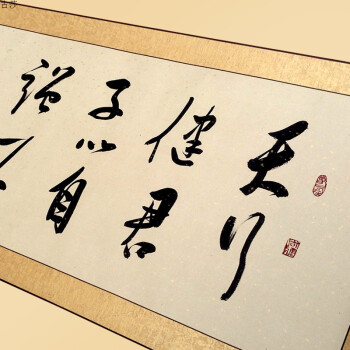 天行
健君
子以自
强不